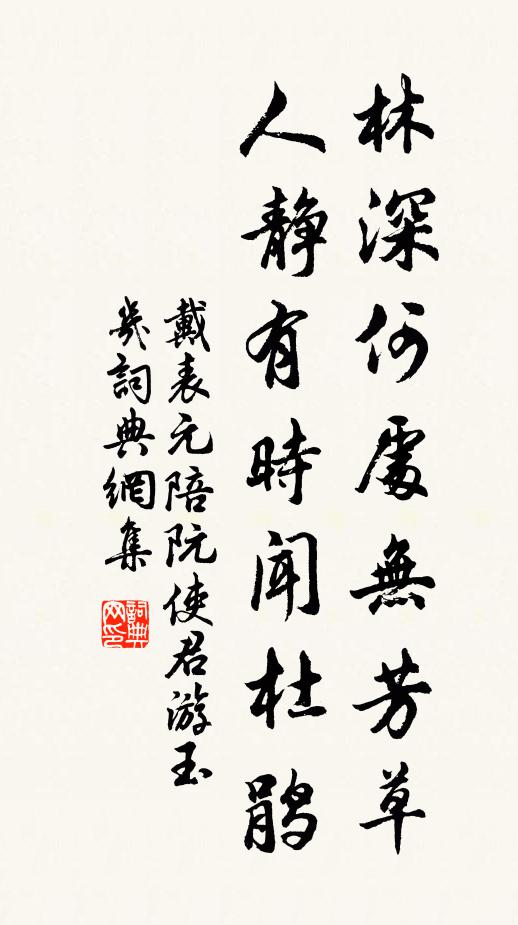 林深何處無芳草
人静有時聞杜鹃
戴表元陪阮使君游玉
几詞典網集
詞典网印